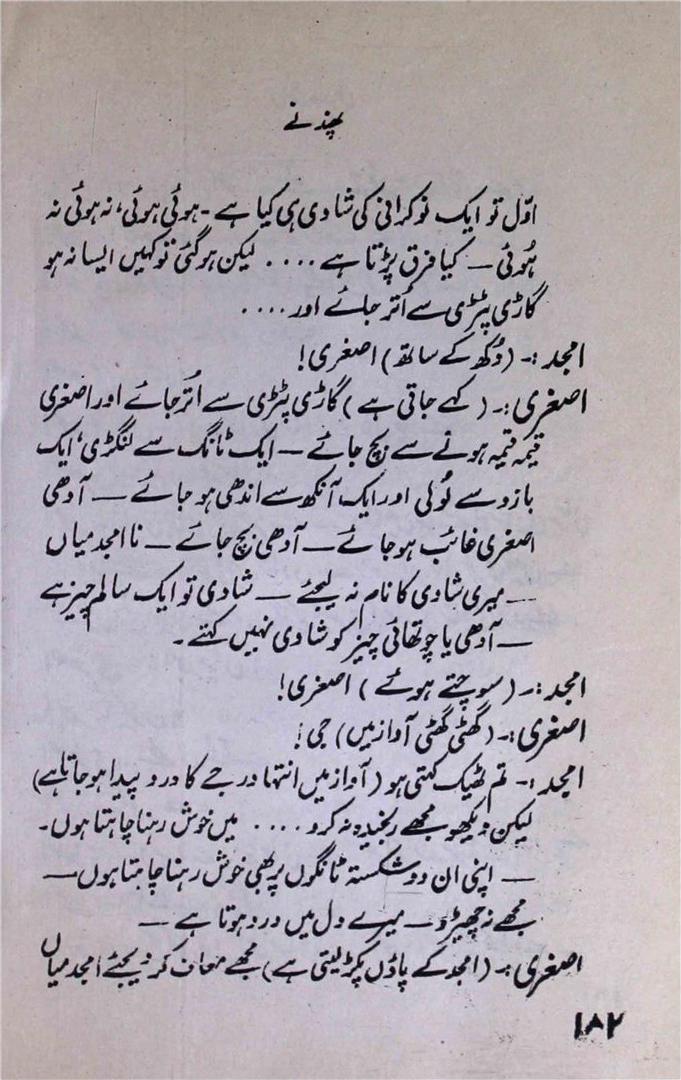 پھندنے
اوّل تو ایک نوکرانی کی شادی ہی کیا ہے ۔ ہوئی ہوئی، نہ ہوئی نہ
ہُوئی — کیا فرق پڑتا ہے .... لیکن ہو گئی تو کہیں ایسا نہ ہو
گاڑی پٹڑی سے اُتر جائے اور ....
امجد :۔ (دُکھ کے ساتھ) اصغری!
اصغری :۔ (کہے جاتی ہے) گاڑی پٹڑی سے اُتر جائے اور اصغری
قیمہ قیمہ ہونے سے بچ جائے — ایک ٹانگ سے لنگڑی، ایک
بازو سے لُولی اور ایک آنکھ سے اندھی ہو جائے — آدھی
اصغری غائب ہو جائے — آدھی بچ جائے — نا امجد میاں
— میری شادی کا نام نہ لیجئے — شادی تو ایک سالم چیز ہے
— آدھی یا چوتھائی چیز کو شادی نہیں کہتے ۔
امجد :۔ (سوچتے ہوئے) اصغری!
اصغری :۔ (گھٹی گھٹی آواز میں) جی!
امجد :۔ تم ٹھیک کہتی ہو (آواز میں انتہا درجے کا درد پیدا ہو جاتا ہے)
لیکن دیکھو مجھے رنجیدہ نہ کرو .... میں خوش رہنا چاہتا ہوں۔
— اپنی ان دو شکستہ ٹانگوں پر بھی خوش رہنا چاہتا ہوں —
مجھے نہ چھیڑو — میرے دل میں درد ہوتا ہے —
اصغری :۔ (امجد کے پاؤں پکڑ لیتی ہے) مجھے معاف کر دیجئے امجد میاں
۱۸۲